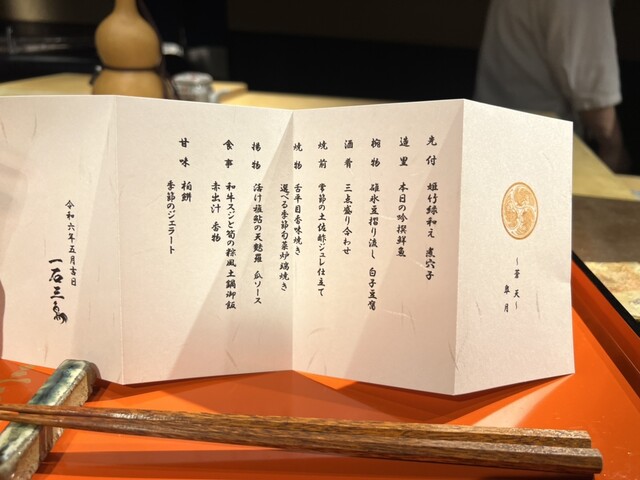 ～蒼天～
皐月
先付 姫竹緑和え 煮穴子
造里 本日の吟撰鮮魚
椀物 碓氷豆摺り流し 白子豆腐
酒肴 三点盛り合わせ
焼前 常節の土佐酢ジュレ仕立て
焼物 舌平目香味焼き
選べる季節旬菜炉端焼き
揚物 活け稚鮎の天麩羅 瓜ソース
食事 和牛スジと筍の粽風土鍋御飯
赤出汁 香物
甘味 柏餅
季節のジェラート
令和六年五月吉日
一石三鳥